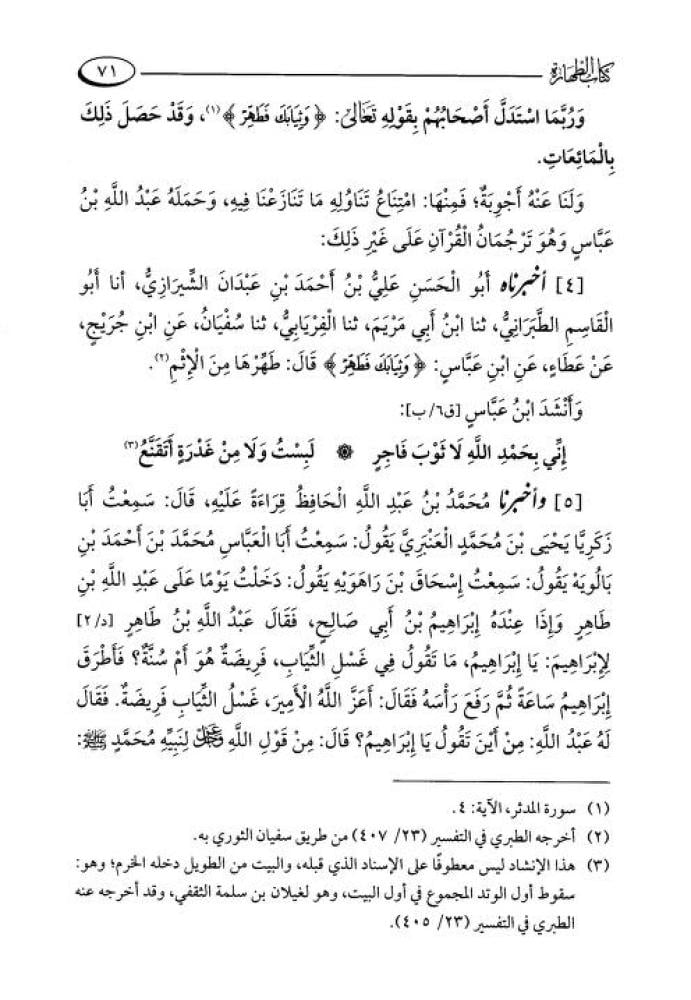 كتاب الطهارة ٧١
وَرُبَّمَا اسْتَدَلَّ أَصْحَابُهُمْ بِقَوْلِهِ تَعَالَىٰ: ﴿ وَثِيَابَكَ فَطَهِّرْ ﴾(١)، وَقَدْ حَصَلَ ذَلِكَ
بِالْمَائِعَاتِ.
وَلَنَا عَنْهُ أَجْوِبَةٌ؛ فَمِنْهَا: امْتِنَاعُ تَنَاوُلِهِ مَا تَنَازَعْنَا فِيهِ، وَحَمَلَهُ عَبْدُ اللَّهِ بْنُ
عَبَّاسٍ وَهُوَ تَرْجُمَانُ الْقُرْآنِ عَلَى غَيْرِ ذَلِكَ:
[٤] أخبرناه أَبُو الْحَسَنِ عَلِيُّ بْنُ أَحْمَدَ بْنِ عَبْدَانَ الشِّيرَازِيُّ، أنا أَبُو
الْقَاسِمِ الطَّبَرَانِيُّ، ثنا ابْنُ أَبِي مَرْيَمَ، ثنا الْفِرْيَابِيُّ، ثنا سُفْيَانُ، عَنِ ابْنِ جُرَيْجٍ،
عَنْ عَطَاءٍ، عَنِ ابْنِ عَبَّاسٍ: ﴿ وَثِيَابَكَ فَطَهِّرْ ﴾ قَالَ: طَهِّرْهَا مِنَ الْإِثْمِ(٢).
وَأَنْشَدَ ابْنُ عَبَّاسٍ [ق٦/ب]:
إِنِّي بِحَمْدِ اللَّهِ لَا ثَوْبَ فَاجِرٍ ۞ لَبِسْتُ وَلَا مِنْ غَدْرَةٍ أَتَقَنَّعُ(٣)
[٥] وأخبرنا مُحَمَّدُ بْنُ عَبْدِ اللَّهِ الْحَافِظُ قِرَاءَةً عَلَيْهِ، قَالَ: سَمِعْتُ أَبَا
زَكَرِيَّا يَحْيَى بْنَ مُحَمَّدٍ الْعَنْبَرِيَّ يَقُولُ: سَمِعْتُ أَبَا الْعَبَّاسِ مُحَمَّدَ بْنَ أَحْمَدَ بْنِ
بَالُويَهْ يَقُولُ: سَمِعْتُ إِسْحَاقَ بْنَ رَاهَوَيْهِ يَقُولُ: دَخَلْتُ يَوْمًا عَلَى عَبْدِ اللَّهِ بْنِ
طَاهِرٍ وَإِذَا عِنْدَهُ إِبْرَاهِيمُ بْنُ أَبِي صَالِحٍ، فَقَالَ عَبْدُ اللَّهِ بْنُ طَاهِرٍ [د/٢]
لِإِبْرَاهِيمَ: يَا إِبْرَاهِيمُ، مَا تَقُولُ فِي غَسْلِ الثِّيَابِ، فَرِيضَةٌ هُوَ أَمْ سُنَّةٌ؟ فَأَطْرَقَ
إِبْرَاهِيمُ سَاعَةً ثُمَّ رَفَعَ رَأْسَهُ فَقَالَ: أَعَزَّ اللَّهُ الْأَمِيرَ، غَسْلُ الثِّيَابِ فَرِيضَةٌ. فَقَالَ
لَهُ عَبْدُ اللَّهِ: مِنْ أَيْنَ تَقُولُ يَا إِبْرَاهِيمُ؟ قَالَ: مِنْ قَوْلِ اللَّهِ عَزَّ وَجَلَّ لِنَبِيِّهِ مُحَمَّدٍ ﷺ:
(١) سورة المدثر، الآية: ٤.
(٢) أخرجه الطبري في التفسير (٢٣/ ٤٠٧) من طريق سفيان الثوري به.
(٣) هذا الإنشاد ليس معطوفًا على الإسناد الذي قبله، والبيت من الطويل دخله الخرم؛ وهو:
سقوط أول الوتد المجموع في أول البيت، وهو لغيلان بن سلمة الثقفي، وقد أخرجه عنه
الطبري في التفسير (٢٣/ ٤٠٥).